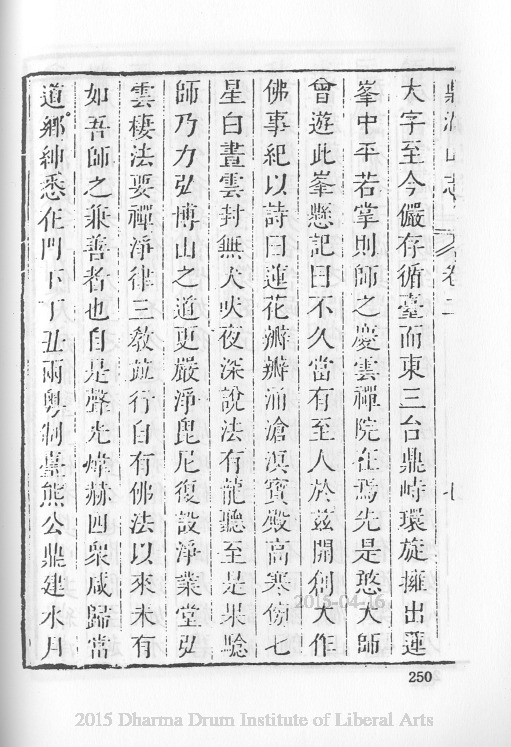 鼎湖山志 卷二 七
大字至今儼存循臺而東三台鼎峙環旋擁出蓮
峯中平若掌則師之慶雲禪院在焉先是憨大師
曾遊此峯懸記曰不久當有至人於茲開創大作
佛事紀以詩曰蓮花瓣瓣涌滄溟寶殿高寒傍七
星白晝雲封無犬吠夜深說法有龍聽至是果驗
師乃力弘博山之道更嚴淨毘尼復設淨業堂弘
雲棲法要禪淨律三敎並行自有佛法以來未有
如吾師之兼善者也自是聲光煒赫四衆咸歸當
道鄉紳悉在門下丁丑兩粤制臺熊公鼎建水月
2015-04-16
250
2015 Dharma Drum Institute of Liberal Arts